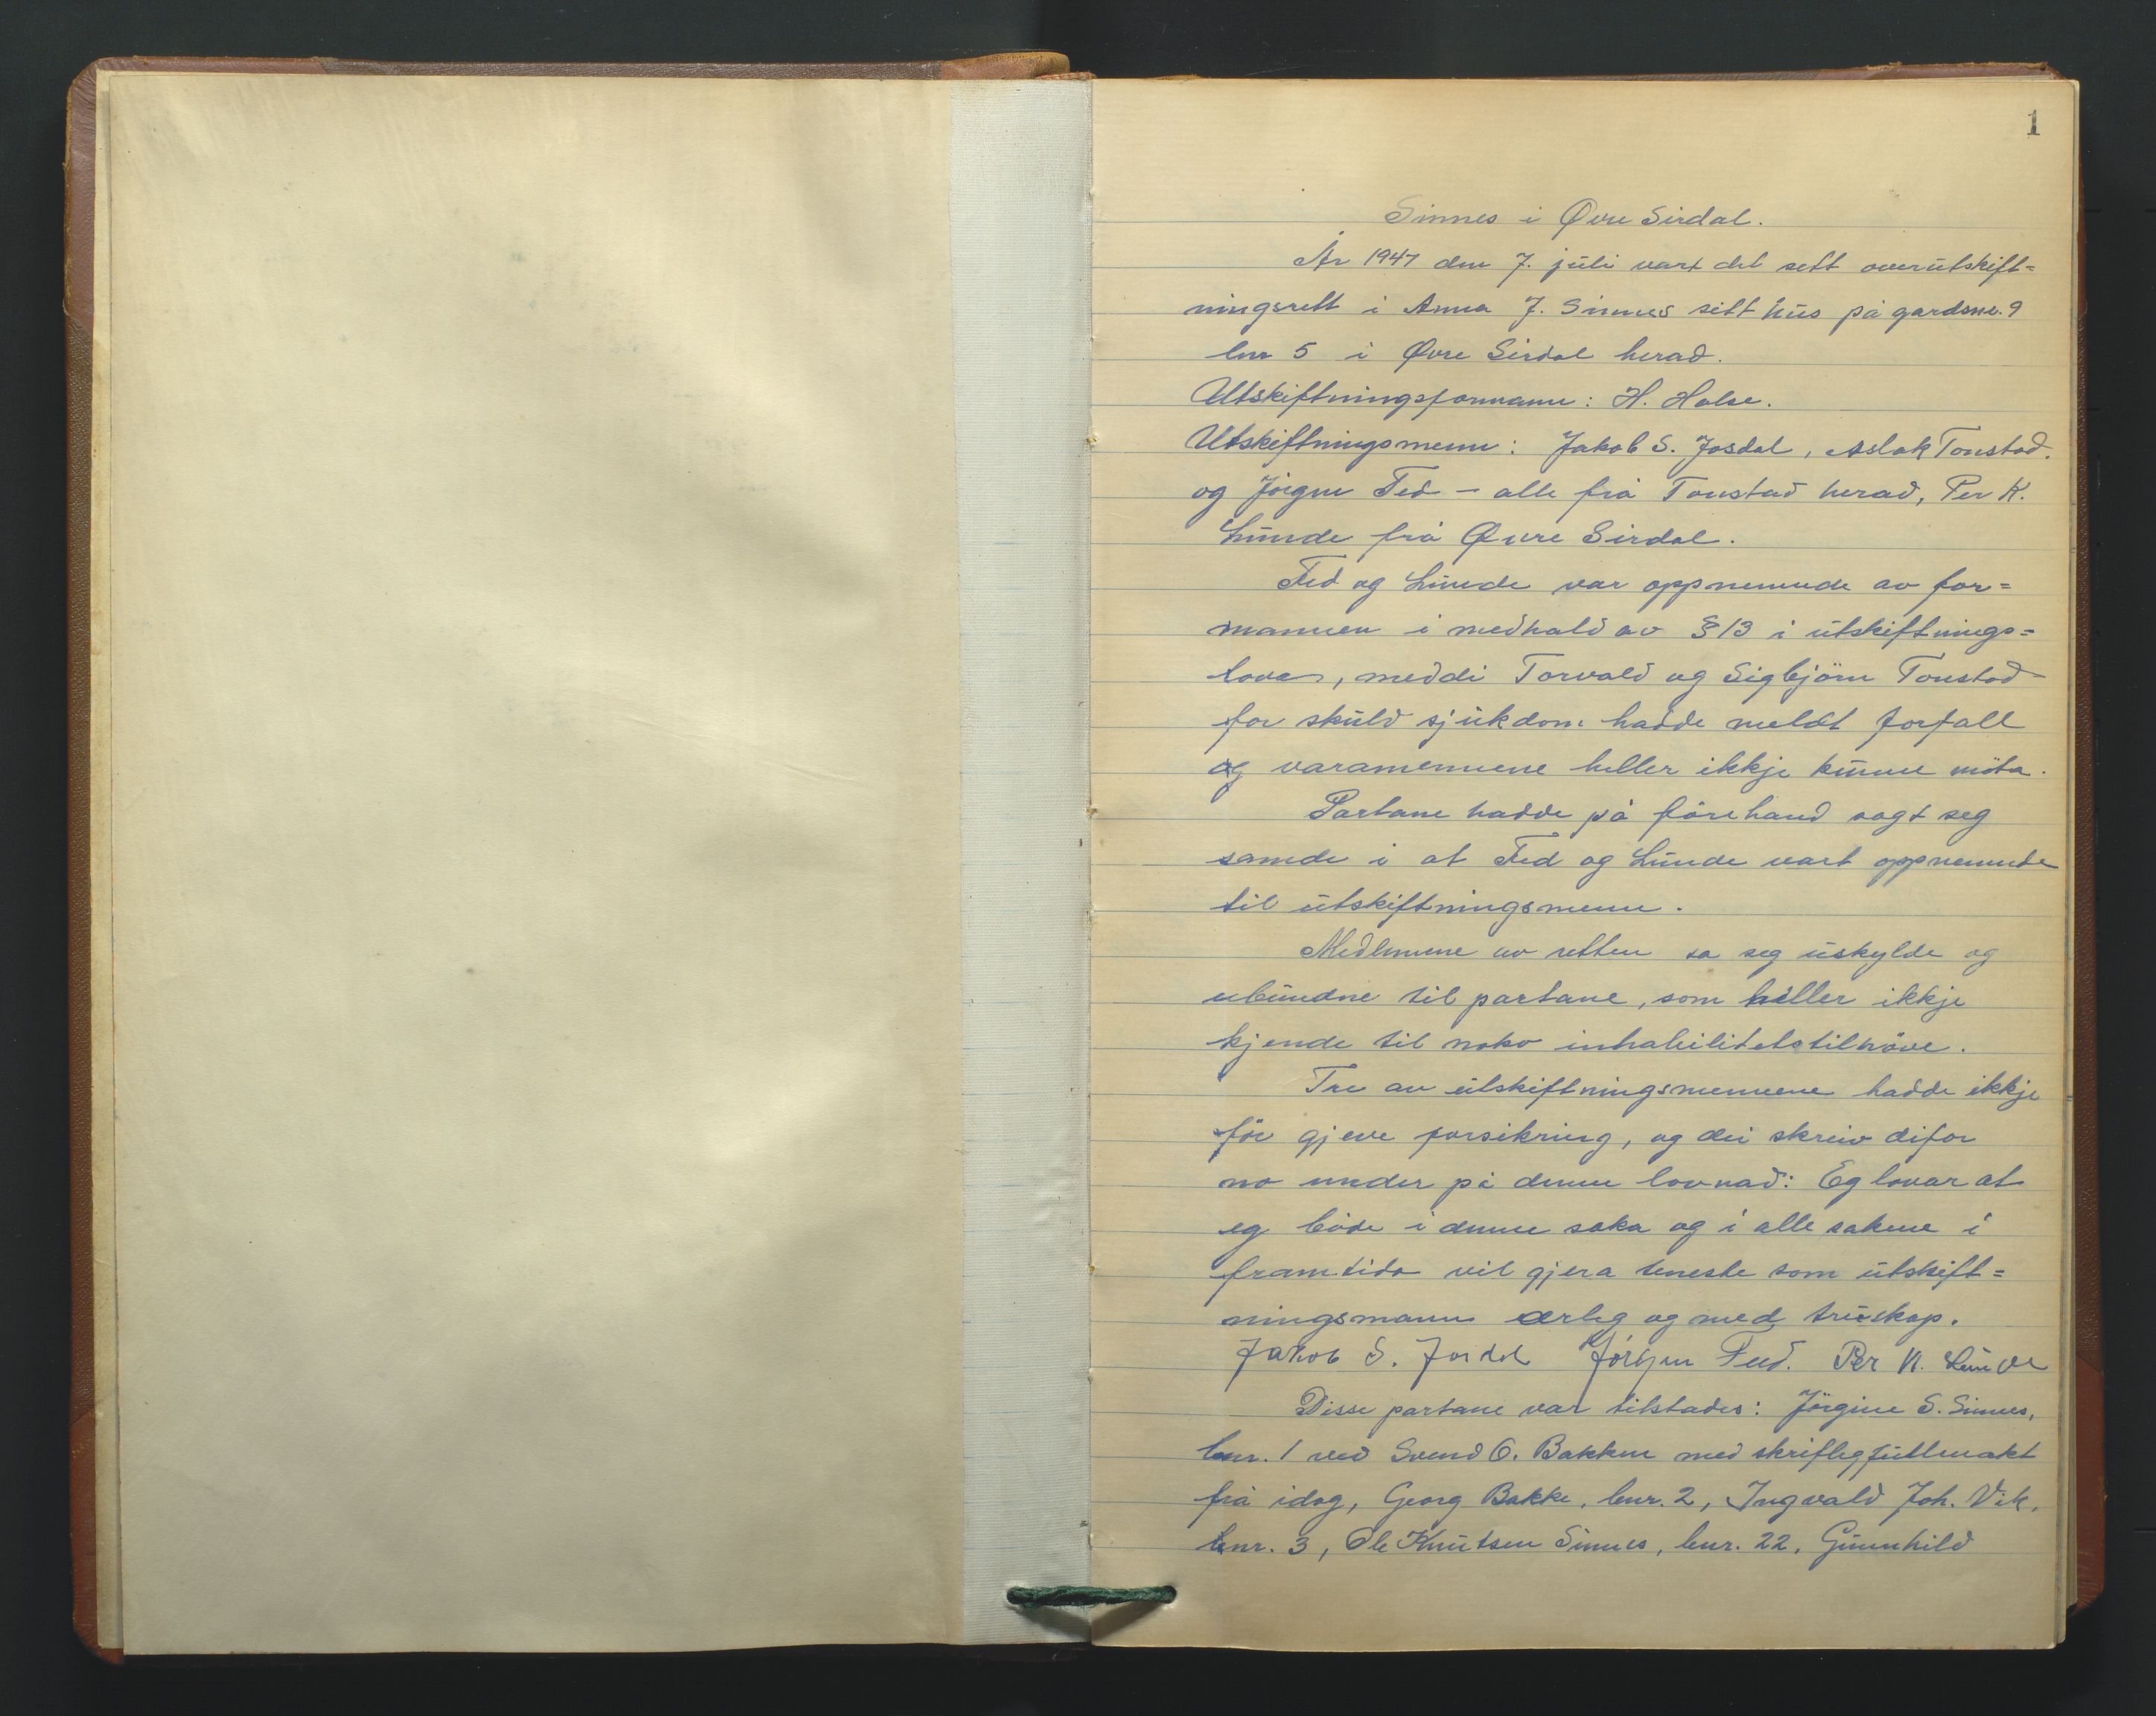 1
Sinnes i Øvre Sirdal.
År 1947 den 7. juli vart det sett overutskift=
ningsrett i Anna J. Sinnes sitt hus på gardsnr. 9
bnr 5 i Øvre Sirdal herad.
Utskiftningsformann: H. Halse.
Utskiftningsmenn: Jakob S. Josdal, Aslak Tonstad.
og Jörgen Fed – alle frå Tonstad herad, Per K.
Lunde frå Øvre Sirdal.
Fed og Lunde var oppnemnde av for=
mannen i medhald av § 13 i utskiftnings=
loven, meddi Torvald og Sigbjörn Tonstad
for skuld sjukdom hadde meldt forfall
og varamennene heller ikkje kunne möta.
Partane hadde på förehand sagt seg
samde i at Fed og Lunde vart oppnemnde
til utskiftningsmenn.
Medlemene av retten sa seg uskylde og
ubundne til partane, som heller ikkje
kjende til noko inhabilitetstilhöve.
Tre av utskiftningsmennene hadde ikkje
för gjeve forsikring, og dei skreiv difor
no under på denne lovnad: Eg lovar at
eg både i denne saka og i alle sakene i
framtida vil gjera teneste som utskift=
ningsmann ærleg og med truskap.
Jakob S. Josdal Jörgen Fed. Per K. Lunde
Disse partane var tilstades: Jörgine S. Sinnes,
bnr. 1 ved Svend O. Bakken med skriftleg fullmakt
frå idag, Georg Bakke, bnr. 2, Ingvald Joh. Vik,
bnr. 3, Ole Knutsen Sinnes, bnr. 22, Gunnhild